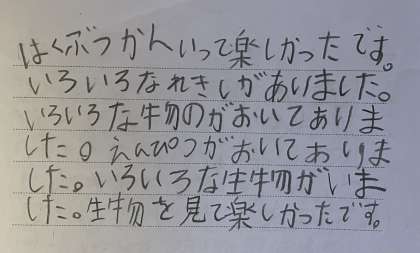 はくぶつかんいって楽しかったです。
いろいろなれきしがありました。
いろいろな生物のがおいてありま
した。えんぴつがおいてありま
した。いろいろな生物がいま
した。生物を見て楽しかったです。